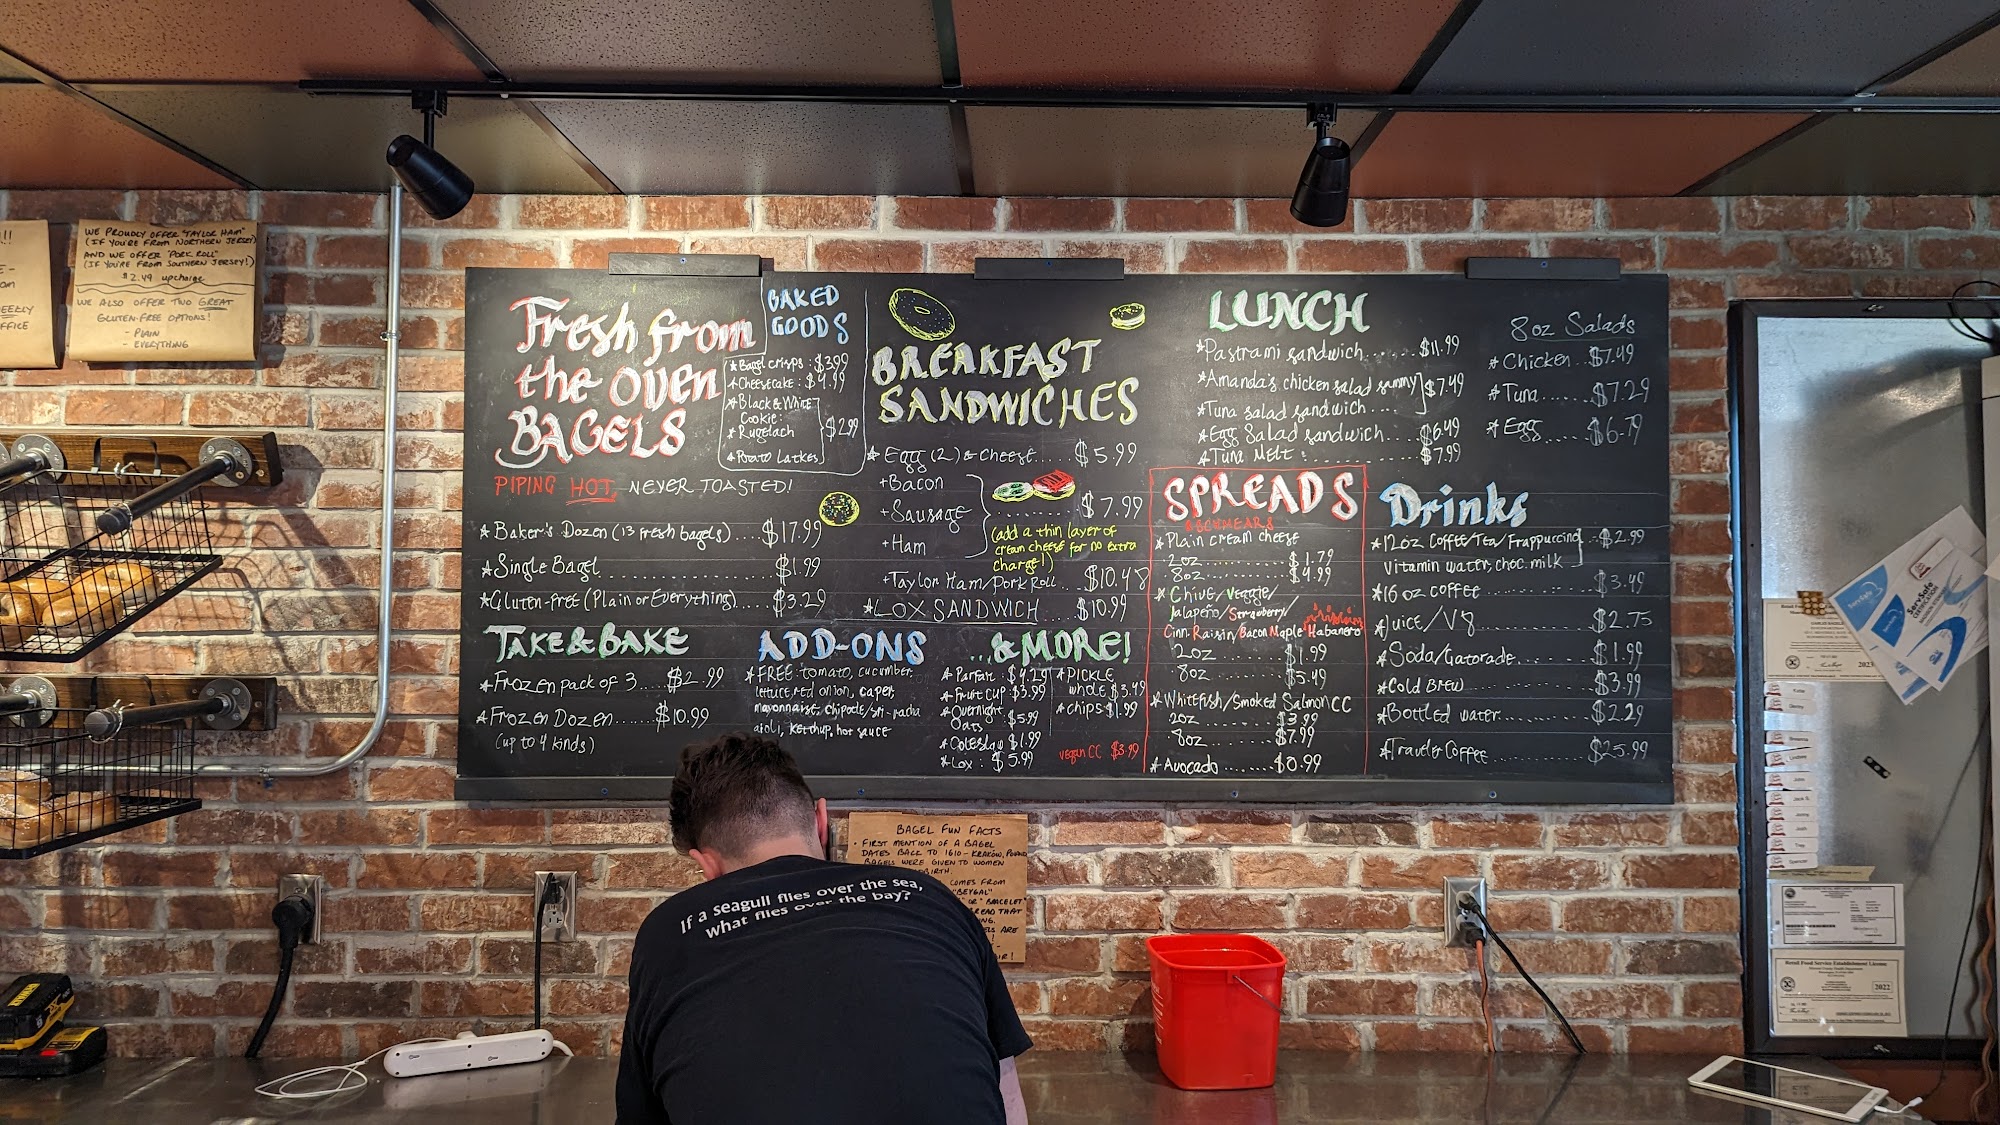 WE PROUDLY OFFER "TAYLOR HAM"
(IF YOU'RE FROM NORTHERN JERSEY)
AND WE OFFER "PORK ROLL"
(IF YOU'RE FROM SOUTHERN JERSEY!)
$2.49 upcharge
WE ALSO OFFER TWO GREAT
GLUTEN-FREE OPTIONS!
- PLAIN
- EVERYTHING
Fresh from
the oven
BAGELS
PIPING HOT, NEVER TOASTED!
Baker's Dozen (13 fresh bagels)....$17.99
Single Bagel..............$1.99
Gluten-free (Plain or Everything)....$3.29
BAKED
GOODS
Bagel crisps: $3.99
Cheesecake: $4.99
Black & White
Cookie:
Rugelach
$2.99
Potato Latkes
TAKE & BAKE
Frozen pack of 3....$2.99
Frozen Dozen......$10.99
(up to 4 kinds)
BREAKFAST
SANDWICHES
Egg (2) & Cheese.....$5.99
+Bacon
+Sausage........$7.99
+Ham
(add a thin layer of
cream cheese for no extra
charge!)
+Taylor Ham/Pork Roll....$10.48
LOX SANDWICH....$10.99
ADD-ONS
FREE: tomato, cucumber,
lettuce, red onion, caper,
mayonnaise, chipotle/sri-racha
aioli, ketchup, hot sauce
...& MORE!
Parfait: $4.29
Fruit cup: $3.99
Overnight
Oats: $5.99
Coleslaw $1.99
Lox: $5.99
PICKLE
whole $3.49
chips $1.99
vegan CC $3.99
LUNCH
Pastrami sandwich......$11.99
Amanda's chicken salad sammy
Tuna salad sandwich....
$7.49
Egg Salad sandwich....$6.49
Tuna Melt:............$7.99
8oz Salads
Chicken...$7.49
Tuna......$7.29
Egg......$6.79
SPREADS
Plain cream cheese
2oz...........$1.79
8oz...........$4.99
Chive/Veggie/
Jalapeño/Strawberry/
Cinn. Raisin/Bacon Maple Habanero
2oz...........$1.99
8oz...........$5.49
Whitefish/Smoked Salmon CC
2oz...........$3.99
8oz...........$7.99
Avocado.......$0.99
Drinks
12oz Coffee/Tea/Frappuccino
Vitamin water, choc. milk
$2.99
16 oz coffee............$3.49
Juice/V8...............$2.75
Soda/Gatorade........$1.99
Cold Brew..............$3.99
Bottled water..........$2.29
Traveler Coffee.......$25.99
BAGEL FUN FACTS
FIRST MENTION OF A BAGEL
DATES BACK TO 1610 - KRAKÓW, POLAND
BAGELS WERE GIVEN TO WOMEN
COMES FROM
"BEYGAL"
OR "BRACELET"
If a seagull flies over the sea,
What flies over the bay?
DEWALT
ServSafe
ServSafe
CERTIFICATION
2023
Retail Food Service Establishment License
2022